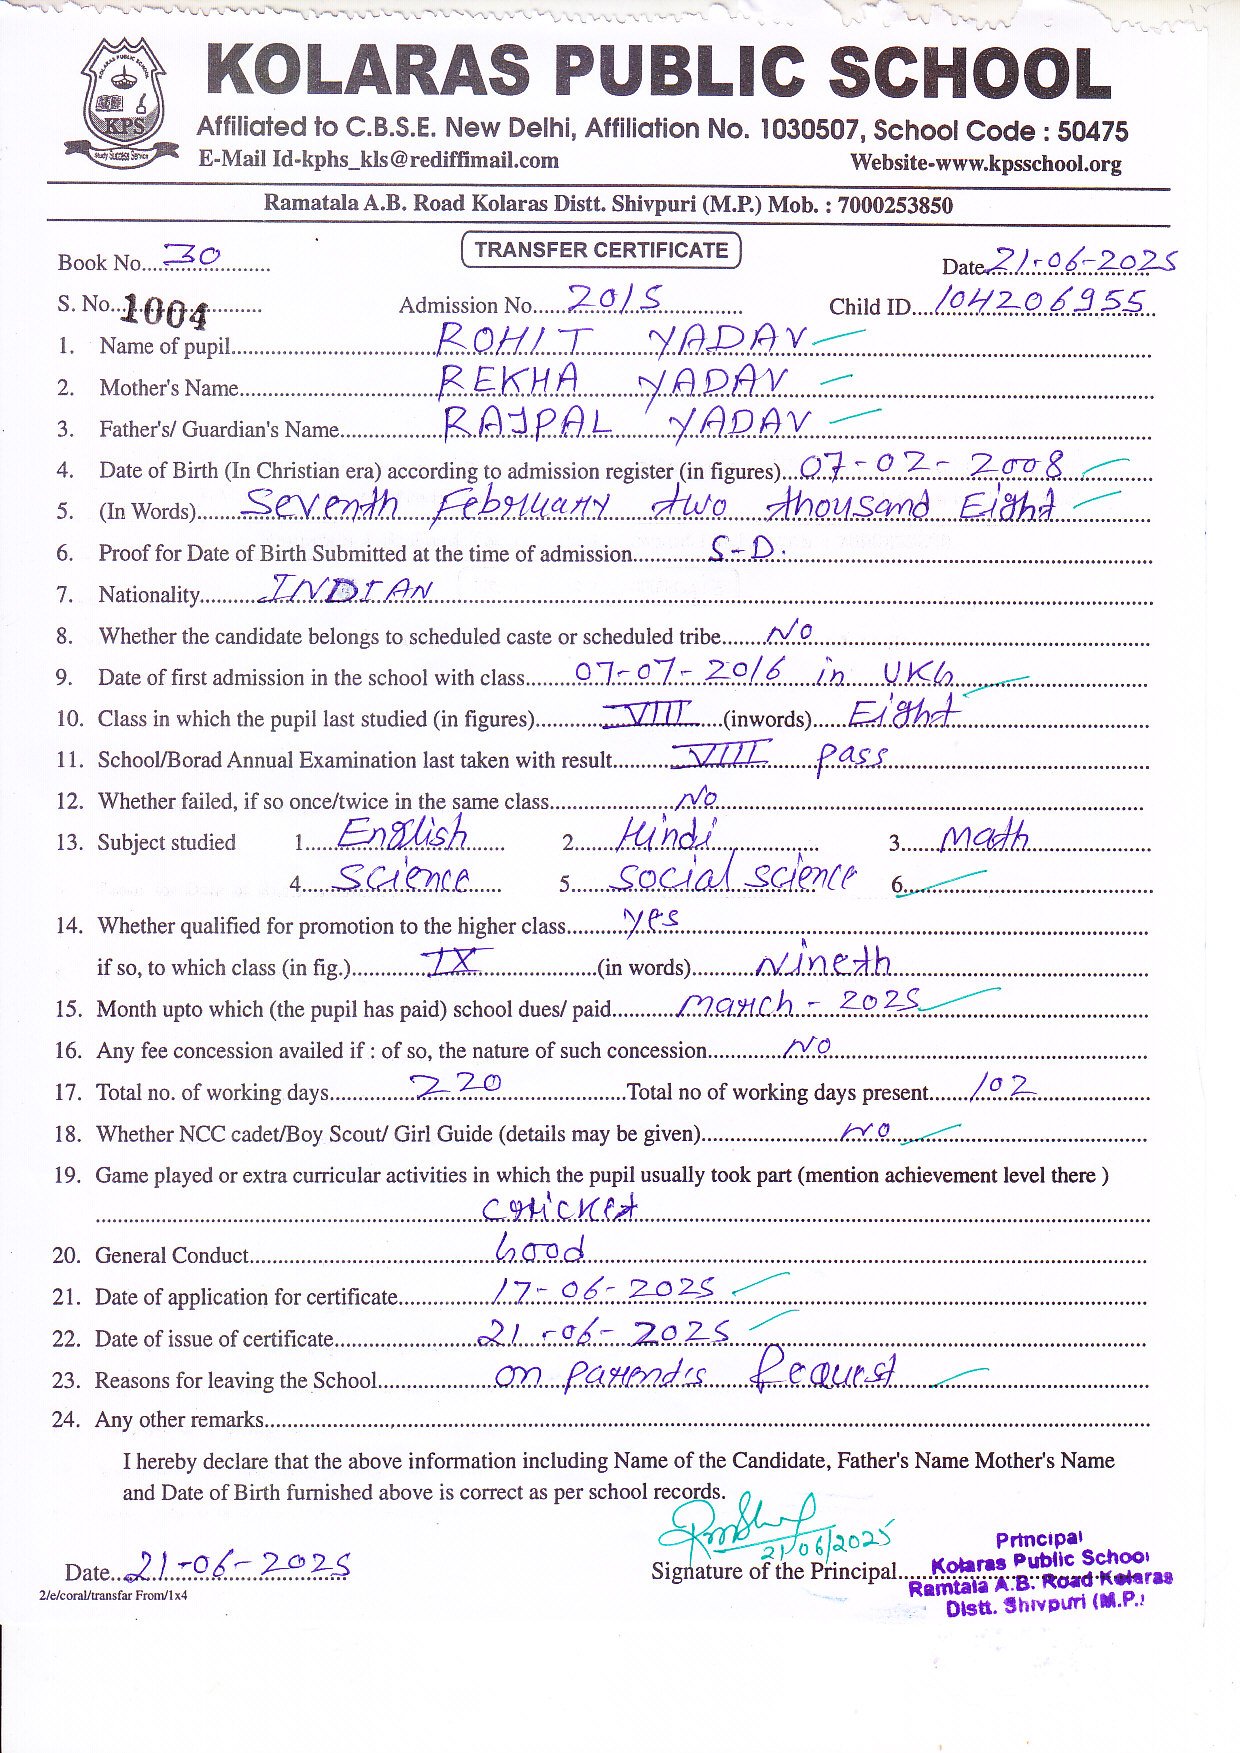 KOLARAS PUBLIC SCHOOL
Affiliated to C.B.S.E. New Delhi, Affiliation No. 1030507, School Code : 50475
E-Mail Id-kphs_kls@rediffimail.com Website-www.kpsschool.org
KOLARAS PUBLIC SCHOOL
KPS
Study Success Service
Ramatala A.B. Road Kolaras Distt. Shivpuri (M.P.) Mob. : 7000253850
Book No. 30 TRANSFER CERTIFICATE Date 21-06-2025
S. No. 1004 Admission No. 2015 Child ID 104206955
1. Name of pupil ROHIT YADAV
2. Mother's Name REKHA YADAV
3. Father's/ Guardian's Name RAJPAL YADAV
4. Date of Birth (In Christian era) according to admission register (in figures) 07-02-2008
5. (In Words) Seventh February two thousand Eight
6. Proof for Date of Birth Submitted at the time of admission S-D.
7. Nationality INDIAN
8. Whether the candidate belongs to scheduled caste or scheduled tribe NO
9. Date of first admission in the school with class 07-07-2016 in UKG
10. Class in which the pupil last studied (in figures) VIII (inwords) Eight
11. School/Borad Annual Examination last taken with result VIII pass
12. Whether failed, if so once/twice in the same class No
13. Subject studied 1. English 2. Hindi 3. Math
4. Science 5. Social science 6.
14. Whether qualified for promotion to the higher class yes
if so, to which class (in fig.) IX (in words) Nineth
15. Month upto which (the pupil has paid) school dues/ paid March - 2025
16. Any fee concession availed if : of so, the nature of such concession NO
17. Total no. of working days 220 Total no of working days present 102
18. Whether NCC cadet/Boy Scout/ Girl Guide (details may be given) NO
19. Game played or extra curricular activities in which the pupil usually took part (mention achievement level there )
cricket
20. General Conduct Good
21. Date of application for certificate 17-06-2025
22. Date of issue of certificate 21-06-2025
23. Reasons for leaving the School on parent's Request
24. Any other remarks
I hereby declare that the above information including Name of the Candidate, Father's Name Mother's Name
and Date of Birth furnished above is correct as per school records.
21/06/2025
Date 21-06-2025 Signature of the Principal
Principal
Kolaras Public School
Ramtala A.B. Road Kolaras
Distt. Shivpuri (M.P.)
2/e/coral/transfar From/1x4